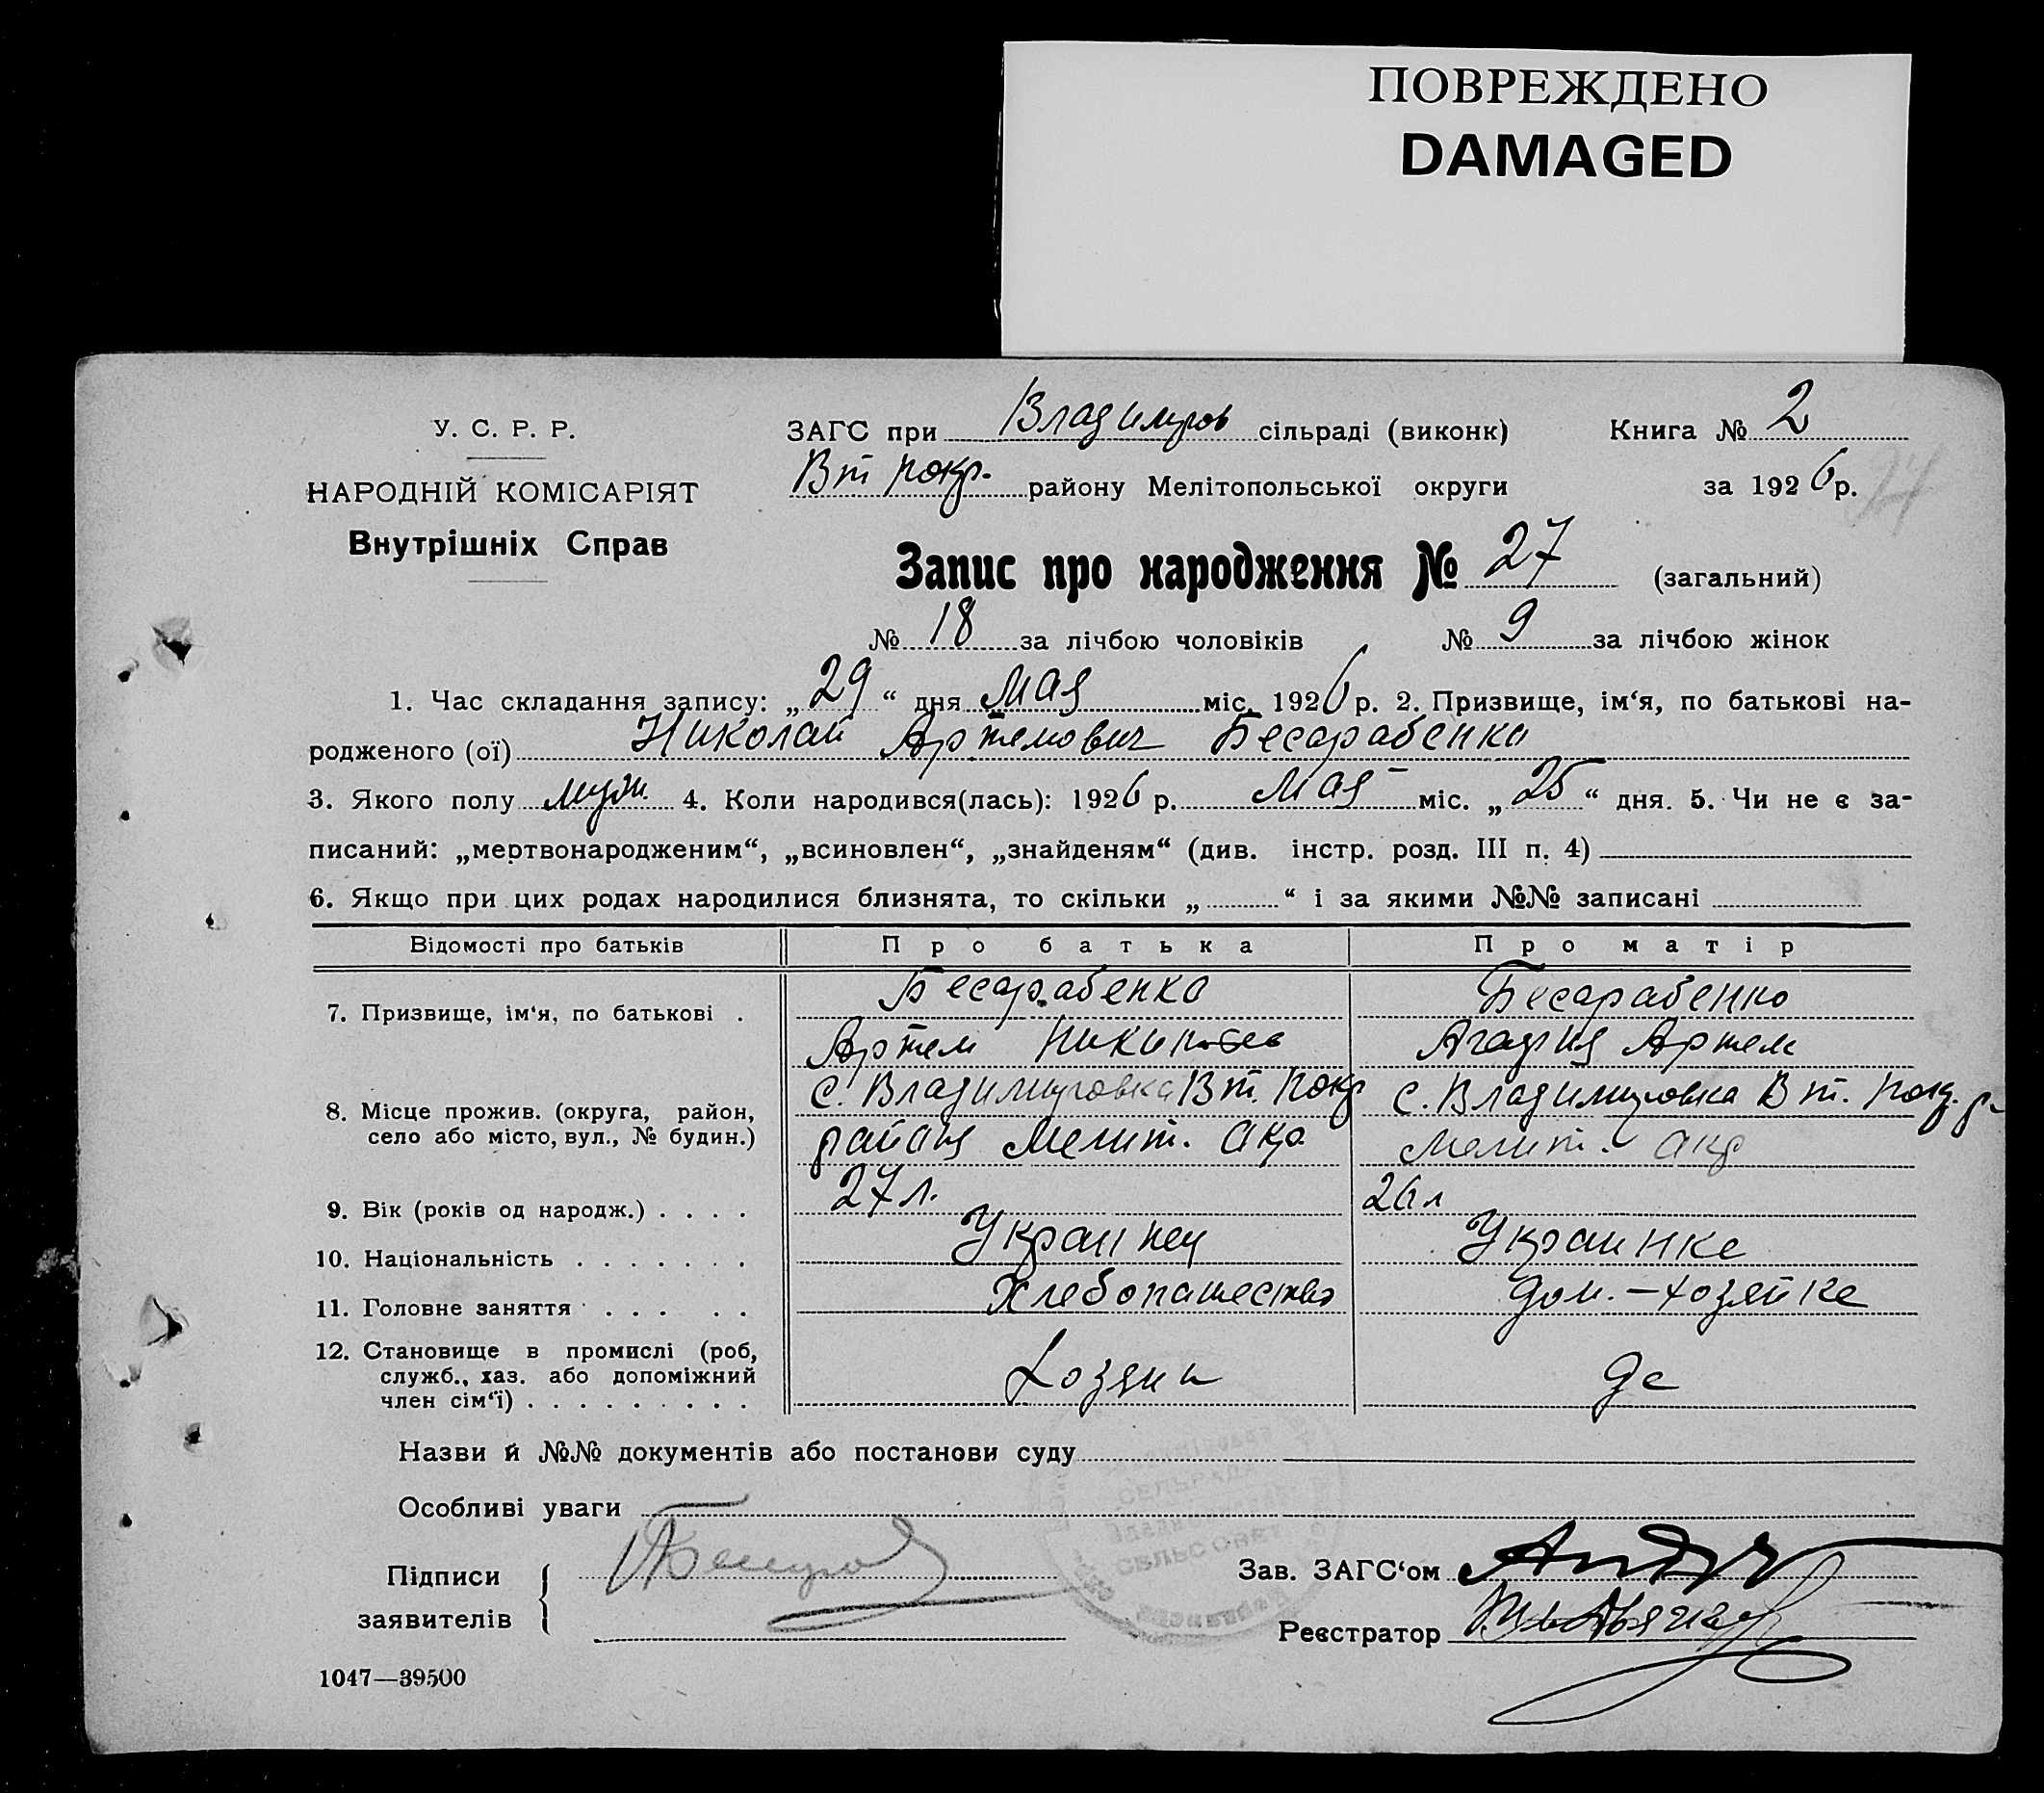 ПОВРЕЖДЕНО
DAMAGED
У. С. Р. Р.
НАРОДНІЙ КОМІСАРІЯТ
Внутрішніх Справ
ЗАГС при Владимиров сільраді (виконк) Книга № 2
Вт покр. району Мелітопольської округи за 1926 р.
74
Запис про народження № 27 (загальний)
№ 18 за лічбою чоловіків № 9 за лічбою жінок
1. Час складання запису: „29“ дня Мая міс. 1926 р. 2. Призвище, ім‘я, по батькові на-
родженого (ої) Николай Артемович Бесарабенко
3. Якого полу муж. 4. Коли народився(лась): 1926 р. Мая міс. „25“ дня. 5. Чи не є за-
писаний: „мертвонародженим“, „всиновлен“, „знайденям“ (див. інстр. розд. III п. 4)
6. Якщо при цих родах народилися близнята, то скільки „ “ і за якими №№ записані
Відомості про батьків Про батька Про матір
7. Призвище, ім‘я, по батькові . Бесарабенко Бесарабенко
Артем Артем
8. Місце прожив. (округа, район, село або місто, вул., № будин.) с. Владимировка Вт. Покр с. Владимировка Вт. Покр. р-
района Мелит. окр Мелит. окр
9. Вік (років од народж.) . . . . 27 л. 26 л
10. Національність . . . . . . . Украинец Украинке
11. Головне заняття . . . . . Хлебопашество дом. – хозяйке
12. Становище в промислі (роб, служб., хаз. або допоміжний член сім‘ї) . . . . . . . . . Хозяин
Назви й №№ документів або постанови суду
Особливі уваги
СЕЛЬРАДА
СЕЛЬСОВЕТ
Підписи
заявителів
Зав. ЗАГС‘ом
Реєстратор
1047—39500